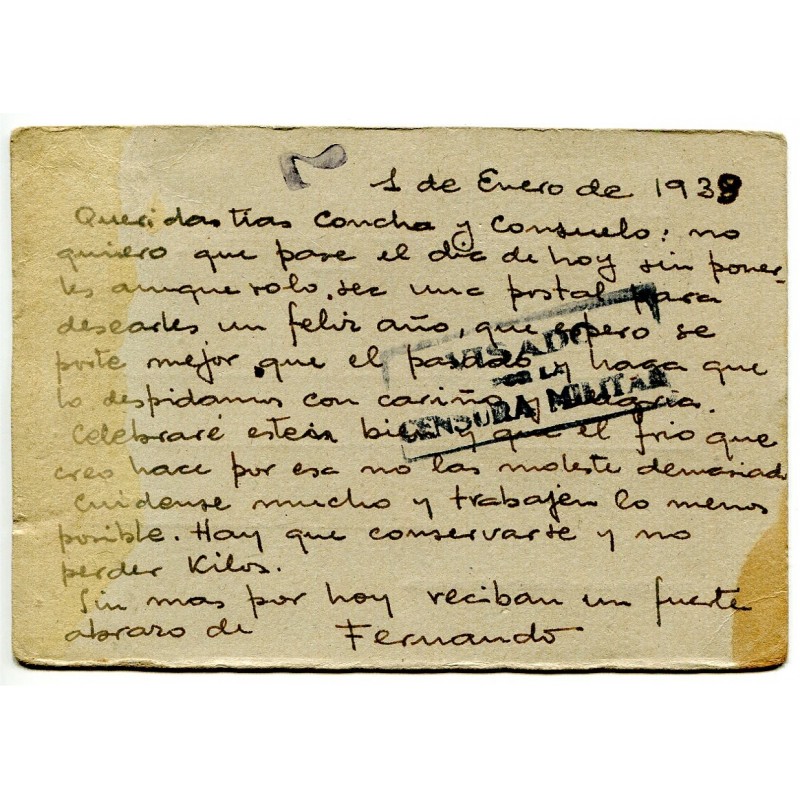 1 de Enero de 1938
Queridas tias Concha y Consuelo: no
quiero que pase el dia de hoy sin poner-
les aunque solo sea una postal para
desearles un feliz año, que espero se
porte mejor que el pasado y haga que
lo despidamos con cariño y alegria.
Celebraré esteis bien y que el frio que
creo hace por esa no las moleste demasiado
Cuidense mucho y trabajen lo menos
posible. Hay que conservarse y no
perder Kilos.
Sin mas por hoy reciban un fuerte
abrazo de Fernando
VISADO
POR LA
CENSURA MILITAR